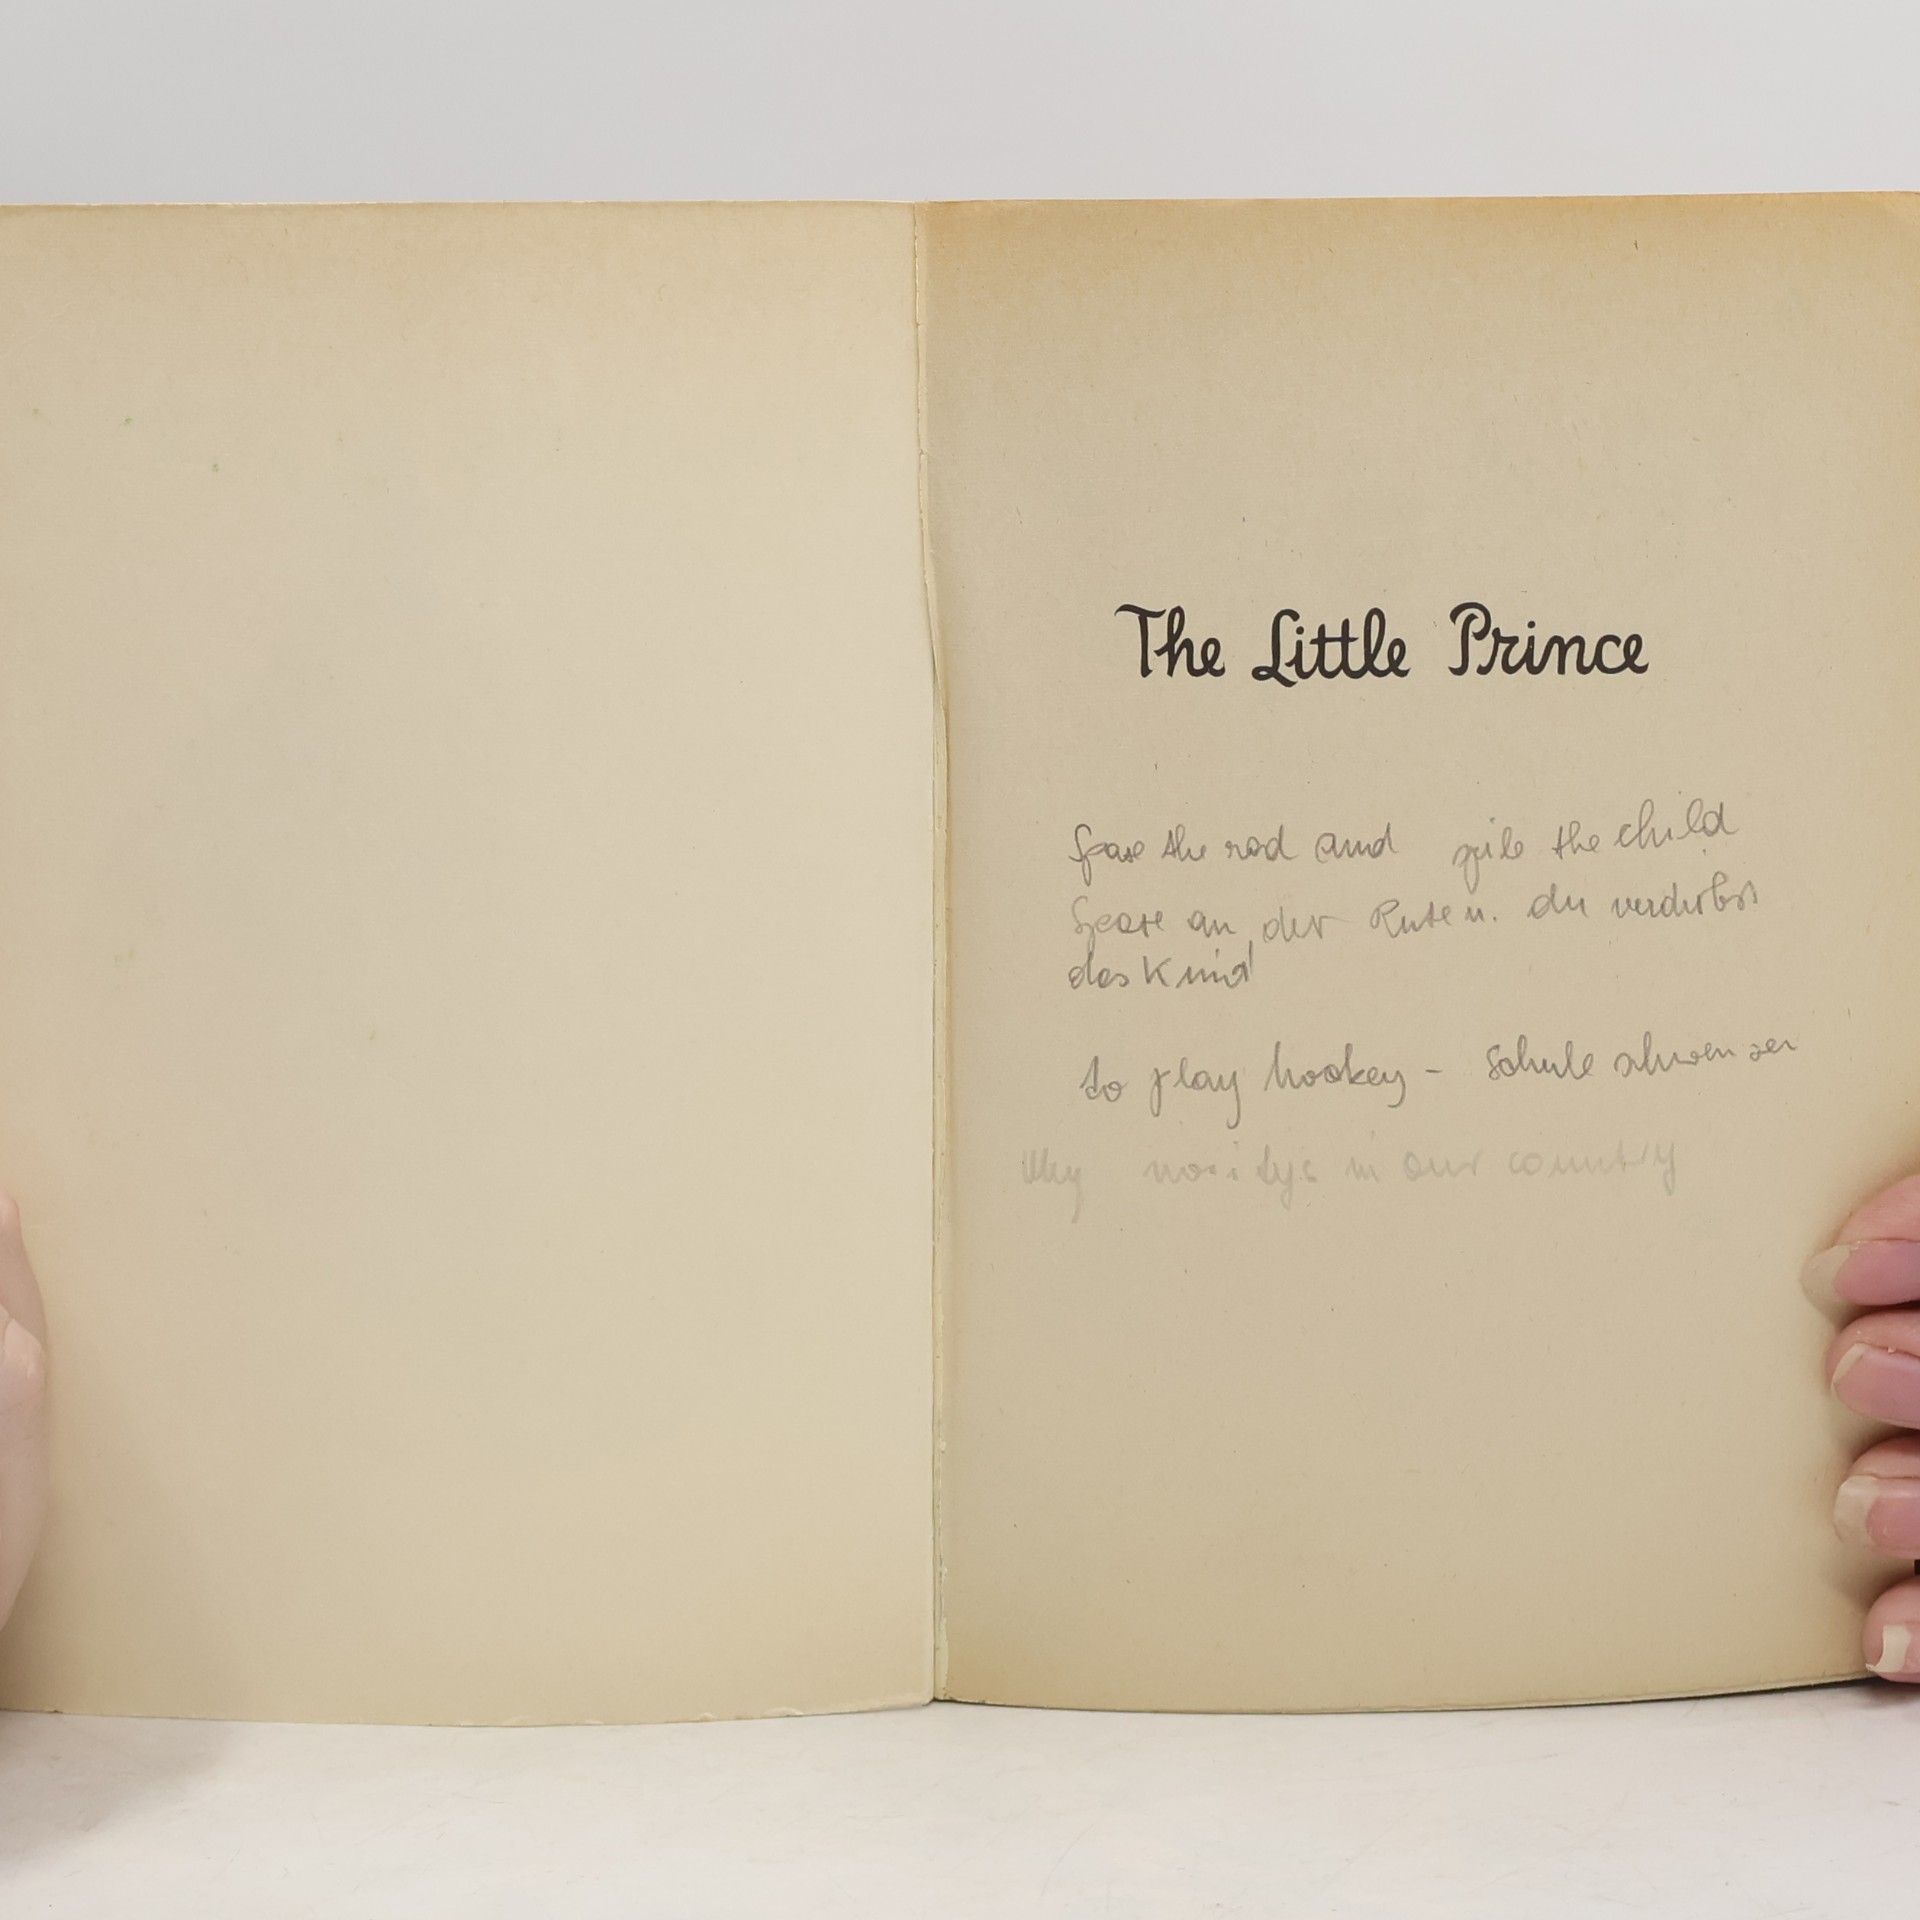 The Little Prince
Spare the rod and spile the child
Spare an der Rute u. du verdirbst
das Kind
to play hookey - Schule schwenzen
Why in our country